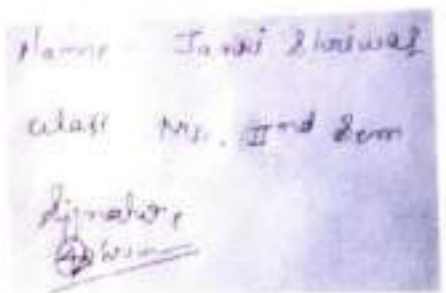 Name Janki Shriwas
Class Msc. IInd Sem
Signature